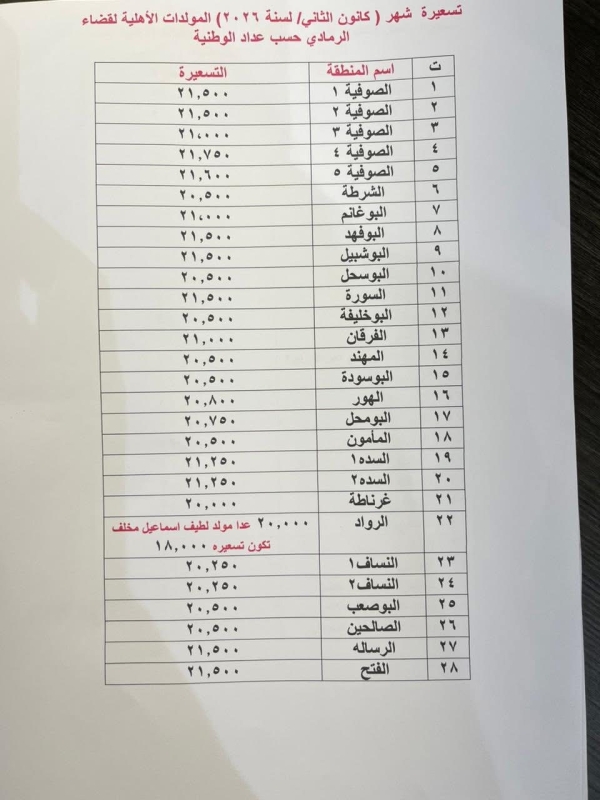 تسعيرة شهر ( كانون الثاني/ لسنة ٢٠٢٦) المولدات الأهلية لقضاء
الرمادي حسب عداد الوطنية
ت اسم المنطقة التسعيرة
١ الصوفية ١ ٢١,٥٠٠
٢ الصوفية ٢ ٢١,٥٠٠
٣ الصوفية ٣ ٢١,٠٠٠
٤ الصوفية ٤ ٢١,٧٥٠
٥ الصوفية ٥ ٢١,٦٠٠
٦ الشرطة ٢٠,٥٠٠
٧ البوغانم ٢١,٠٠٠
٨ البوفهد ٢١,٥٠٠
٩ البوشبيل ٢١,٥٠٠
١٠ البوسحل ٢٠,٥٠٠
١١ السورة ٢١,٥٠٠
١٢ البوخليفة ٢٠,٥٠٠
١٣ الفرقان ٢١,٠٠٠
١٤ المهند ٢٠,٥٠٠
١٥ البوسودة ٢٠,٥٠٠
١٦ الهور ٢٠,٨٠٠
١٧ البومحل ٢٠,٧٥٠
١٨ المأمون ٢٠,٥٠٠
١٩ السده١ ٢١,٢٥٠
٢٠ السده٢ ٢١,٢٥٠
٢١ غرناطة ٢٠,٠٠٠
٢٢ الرواد ٢٠,٠٠٠ عدا مولد لطيف اسماعيل مخلف
تكون تسعيره ١٨,٠٠٠
٢٣ النساف١ ٢٠,٢٥٠
٢٤ النساف٢ ٢٠,٢٥٠
٢٥ البوصعب ٢٠,٥٠٠
٢٦ الصالحين ٢٠,٥٠٠
٢٧ الرساله ٢١,٥٠٠
٢٨ الفتح ٢١,٥٠٠